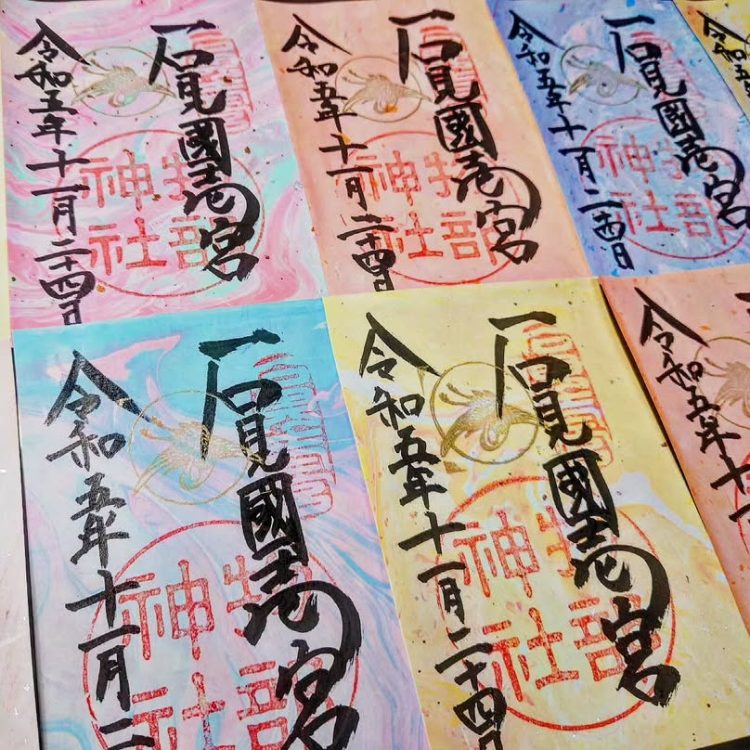 石見國壱宮
物部
神社
令和五年十一月二十四日
石見國壱宮
物部
神社
令和五年十一月二十四日
石見國壱宮
物部
神社
令和五年十一月二十四日
令和五
石見國壱宮
物部
神社
令和五年十一月二
石見國壱宮
物部
神社
令和五年十一月二十四日
令和五年十一